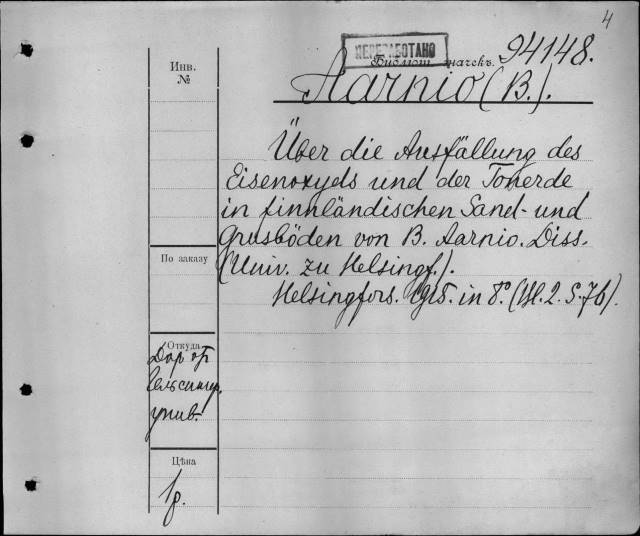 4
ПЕРЕРАБОТАНО
Библіот. значекъ. 94148.
Инв.
№
Aarnio (B.).
Über die Ausfällung des
Eisenoxyds und der Tonerde
in finnländischen Sand- und
Grusböden von B. Aarnio. Diss.
(Univ. zu Helsingf.).
Helsingfors. 1915. in 8°. (Bl. 2. S. 76).
По заказу
Откуда
Даръ от
Гельсингф.
унив.
Цѣна
1 р.